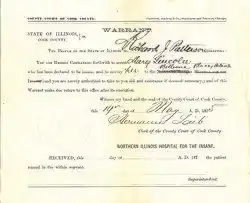 COUNTY COURT OF COOK COUNTY.
WARRANT
STATE OF ILLINOIS,
COOK COUNTY,
THE PEOPLE OF THE STATE OF ILLINOIS
Patterson
YOU ARE HEREBY COMMANDED forthwith to arrest
Mary Lincoln
who has been declared to be insane, and to convey her to the
Batavia
Illinois
and you are hereby authorized to take to your aid and assistance if deemed necessary, and of this
Warrant make due return to this office after its execution.
Witness my hand and the seal of the County Court of Cook County,
this 19th day of May A. D. 1875
Hermann Lieb
Clerk of the County Court of Cook County.
NORTHERN ILLINOIS HOSPITAL FOR THE INSANE.
RECEIVED, this day of A. D. 187 the patient
named in the within warrant.
Superintendent.